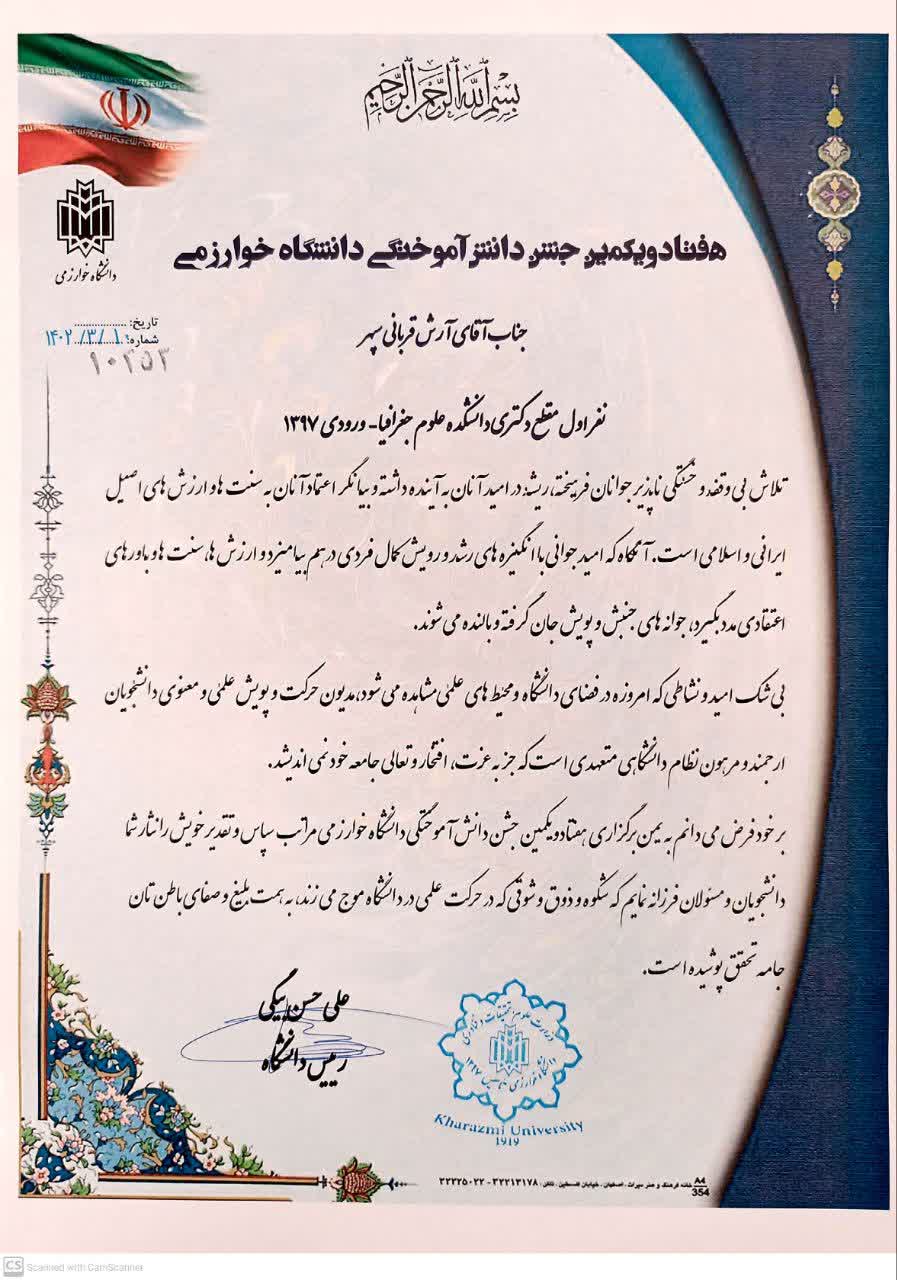 بسم الله الرحمن الرحیم
دانشگاه خوارزمی
هفتادویکمین جشن دانش آموختگی دانشگاه خوارزمی
جناب آقای آرش قربانی سپهر
تاریخ: ..................
شماره: ۱۴۰۲/۳/۱۰
۱۰۲۵۳
نفر اول مقطع دکتری دانشکده علوم جغرافیا- ورودی ۱۳۹۷
تلاش بی وقفه و خستگی ناپذیر جوانان فرهیخته، ریشه در امید آنان به آینده داشته و بیانگر اعتماد آنان به سنت ها و ارزش های اصیل
ایرانی و اسلامی است. آنگاه که امید جوانی با انگیزه های رشد و رویش کمال فردی در هم بیامیزد و ارزش ها، سنت ها و باورهای
اعتقادی مدد بگیرد، جوانه های جنبش و پویش جان گرفته و بالنده می شوند.
بی شک امید و نشاطی که امروزه در فضای دانشگاه و محیط های علمی مشاهده می شود، مدیون حرکت و پویش علمی و معنوی دانشجویان
ارجمند و مرهون نظام دانشگاهی متعهدی است که جز به عزت، افتخار و تعالی جامعه خود نمی اندیشد.
بر خود فرض می دانم به یمن برگزاری هفتادویکمین جشن دانش آموختگی دانشگاه خوارزمی مراتب سپاس و تقدیر خویش را نثار شما
دانشجویان و مسئولان فرزانه نمایم که شکوه و ذوق و شوقی که در حرکت علمی در دانشگاه موج می زند، به همت بلیغ و صفای باطن تان
جامه تحقق پوشیده است.
علی حسن بیگی
رییس دانشگاه
وزارت علوم، تحقیقات و فناوری
دانشگاه خوارزمی
Kharazmi University
1919
خانه فرهنگ و هنر میراث - اصفهان - خیابان فلسطین - تلفن: ۳۲۲۱۳۱۷۸ - ۳۲۲۲۵۰۲۲
A4
354
CS Scanned with CamScanner